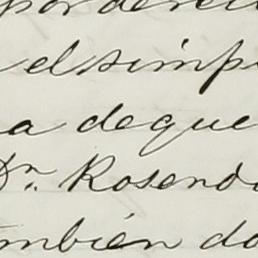 por derec
el simp
a de que
Dn. Rosendo
también do